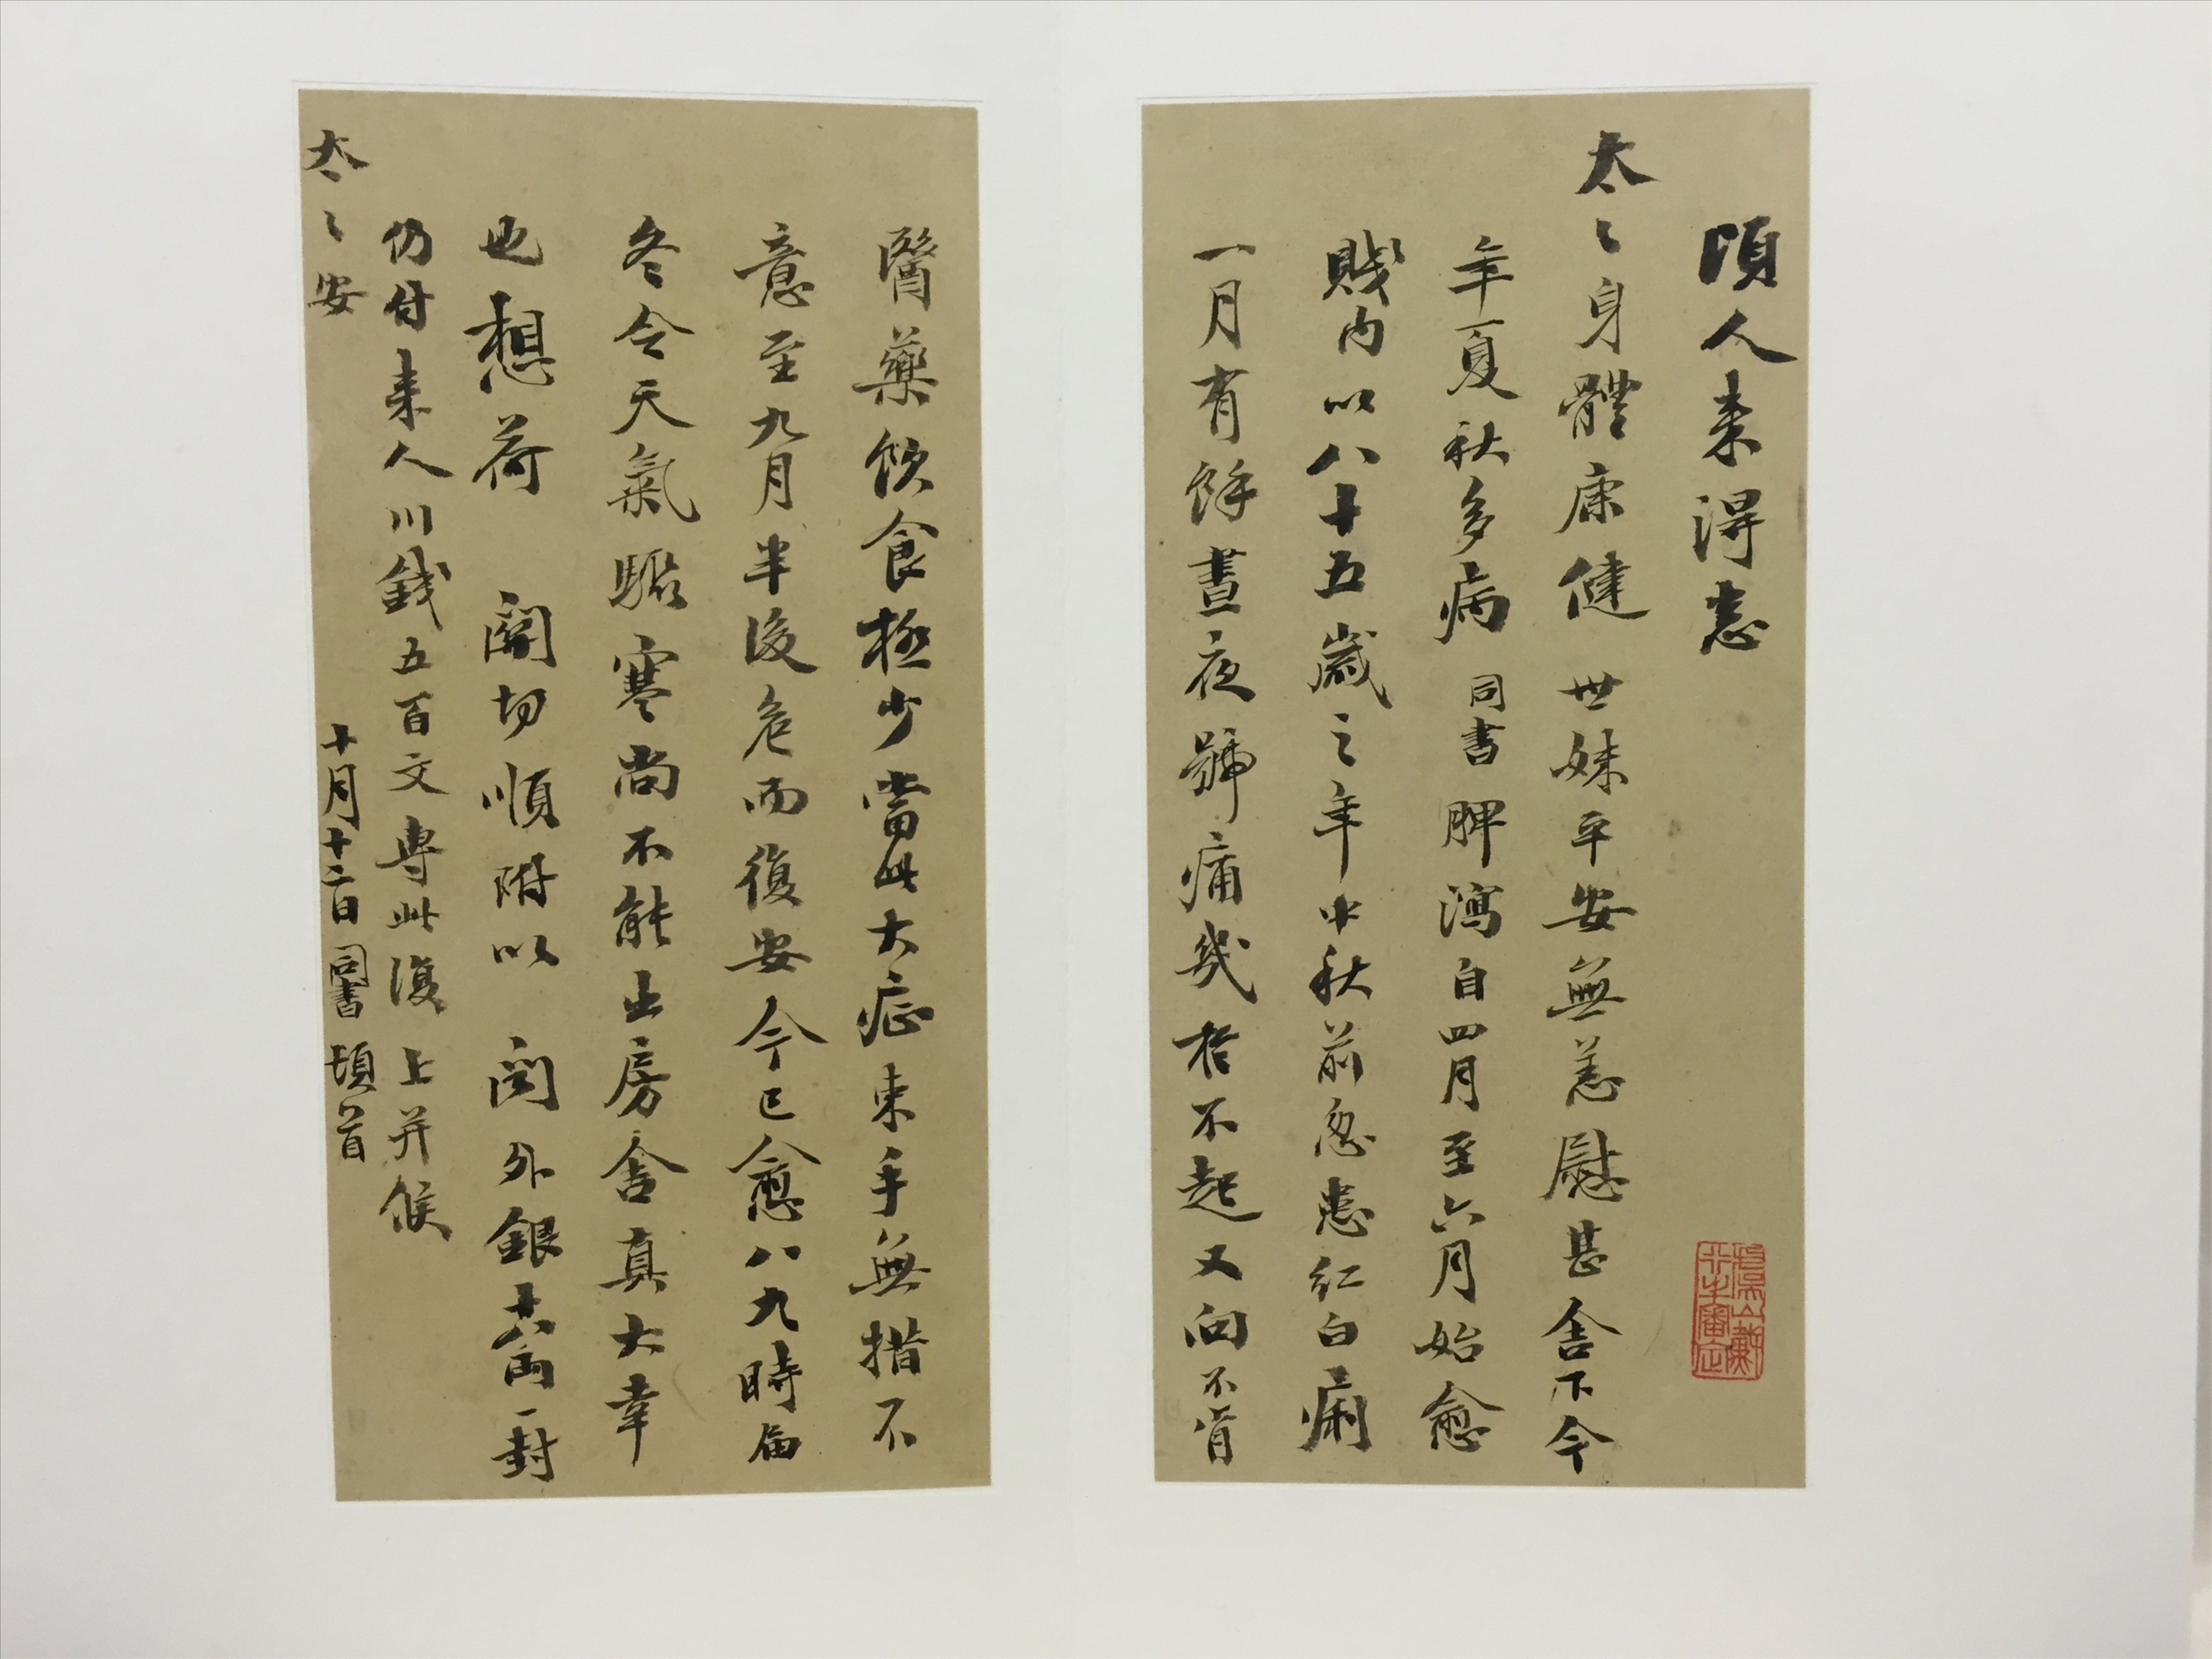 頃人来得悉
太々身體康健 世妹平安無恙慰甚舍下今
年夏秋多病 同書 脾瀉自四月至六月始愈
賤内以八十五歲之年中秋前忽患紅白痢
一月有餘晝夜號痛幾於不起又向不肯
醫藥飲食極少當此大症束手無措不
意至九月半後危而復安今已愈八九時届
冬令天氣驟寒尚不能出房舍真大幸
也想荷 關切順附以 聞外銀十六兩一封
仍付来人川錢五百文專此復 上并候
太々安
十月十二日同書頓首